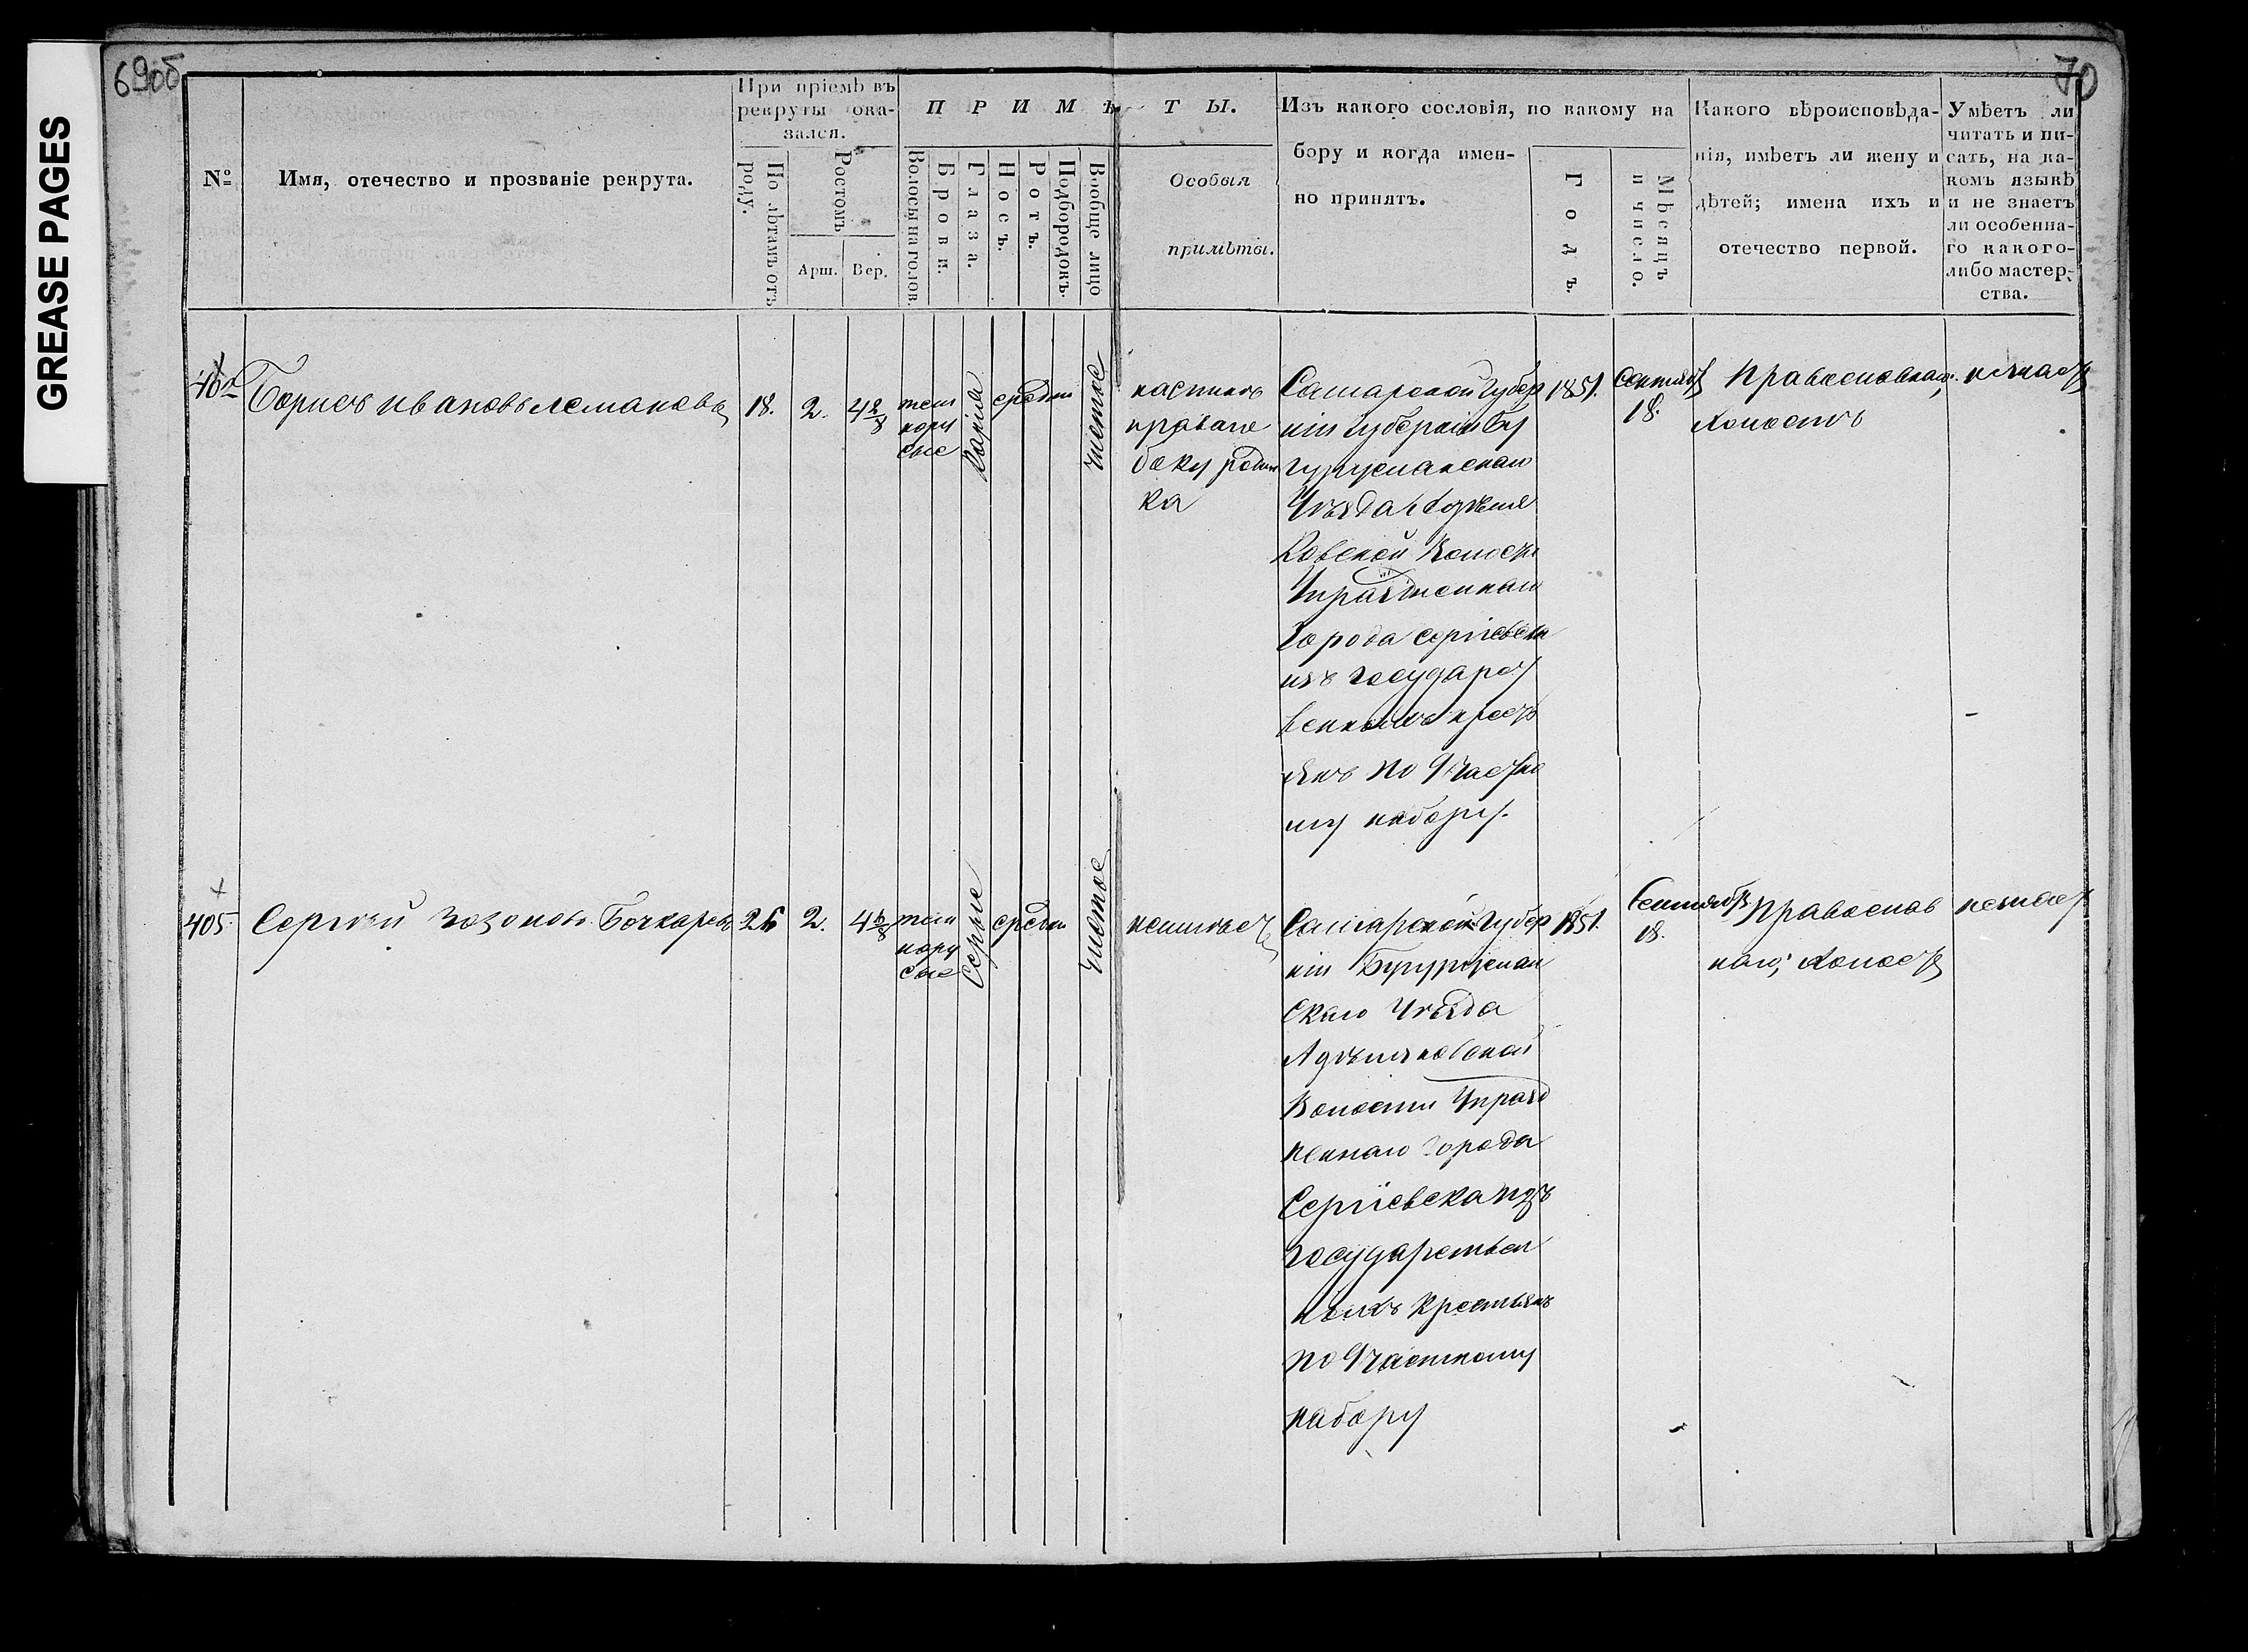 GREASE PAGES
69об
70
№
Имя, отечество и прозваніе рекрута.
При пріемѣ въ
рекруты ока-
зался.
По лѣтамъ отъ
роду.
Ростомъ
Арш.
Вер.
ПРИМѢТЫ.
Волосы на голов.
Брови.
Глаза.
Носъ.
Ротъ.
Подбородокъ.
Вообще лицо
Особыя
примѣты.
Изъ какого сословія, по какому на
бору и когда имен-
но принятъ.
Годъ.
Мѣсяцъ
и число.
Какого вѣроисповѣда-
нія, имѣетъ ли жену и
дѣтей; имена ихъ и
отечество первой.
Умѣетъ ли
читать и пи-
сать, на ка-
комъ языкѣ
и не знаетъ
ли особенна-
го какого-
либо мастер-
ства.
Борисъ Ивановъ
18.
2.
4 2/8
тем
нору
сые
Каріе
средн
чистое
правомъ
боку родин
ка
Самарской губер
ніи губерніи Бу
гурусланскаго
Уѣзда
ковской Волости
Упраздненнаго
Города Сергіевска
изъ государст
венныхъ крест
янъ по 9 частно
му набору.
1851.
Сентяб
18.
Православнаго,
холостъ
405.
Сергѣй Бочкаревъ
26
2.
тем
нору
сые
Серые
средн
чистое
неимѣет
Самарской губер
ніи Бугуруслан
скаго Уѣзда
Волости Упразд
неннаго города
Сергіевска изъ
государствен
ныхъ крестьянъ
по 9 частному
набору
1851.
Сентября
18.
Православ
наго, холост